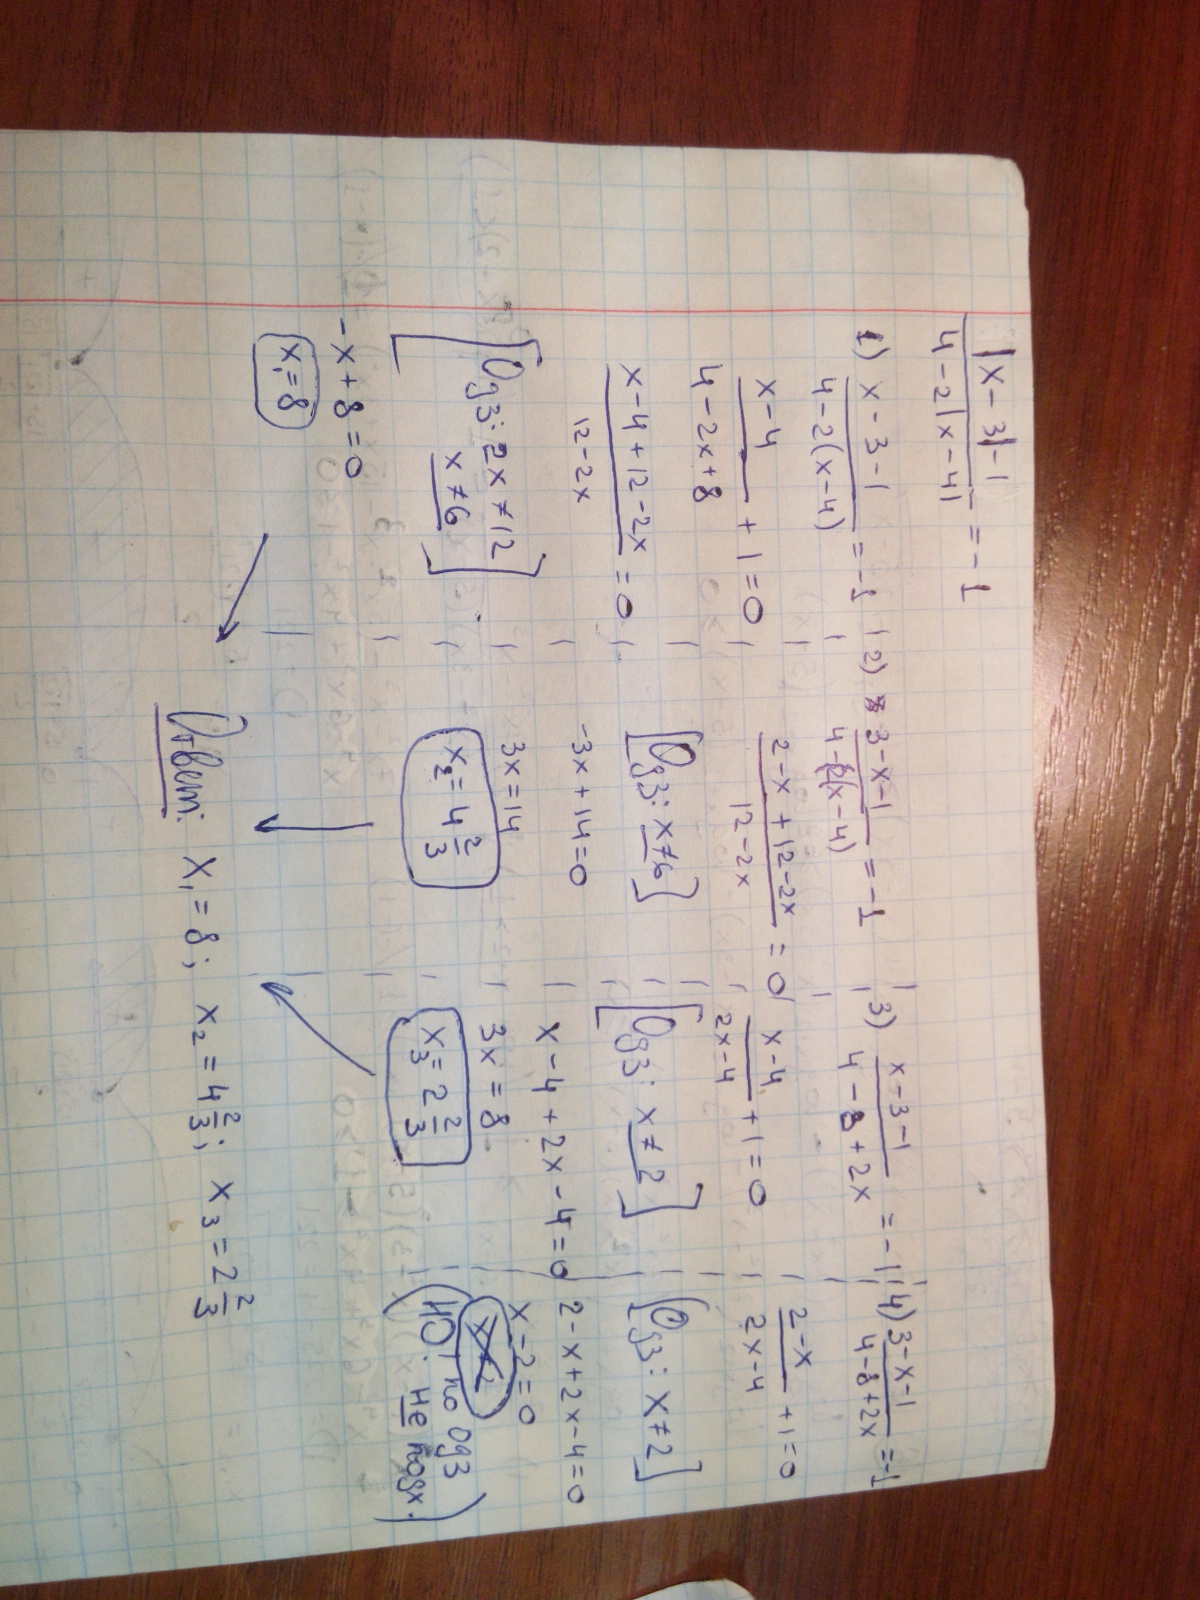 |x-3|-1
4-2|x-4| = -1
1) x-3-1
4-2(x-4) = -1
x-4
4-2x+8 + 1 = 0
x-4+12-2x
12-2x = 0
[Одз: 2x≠12
x≠6]
-x+8=0
x₁=8
2) 3-x-1
4-2(x-4) = -1
2-x+12-2x
12-2x = 0
[Одз: x≠6]
-3x+14=0
3x=14
x₂=4 2/3
3) x-3-1
4-8+2x = -1
x-4
2x-4 +1=0
[Одз: x≠2]
x-4+2x-4=0
3x=8
x₃=2 2/3
4) 3-x-1
4-8+2x =-1
2-x
2x-4 +1=0
[Одз: x≠2]
2-x+2x-4=0
x-2=0
(НО! по одз
не подх.)
Ответ: x₁=8; x₂=4 2/3; x₃=2 2/3